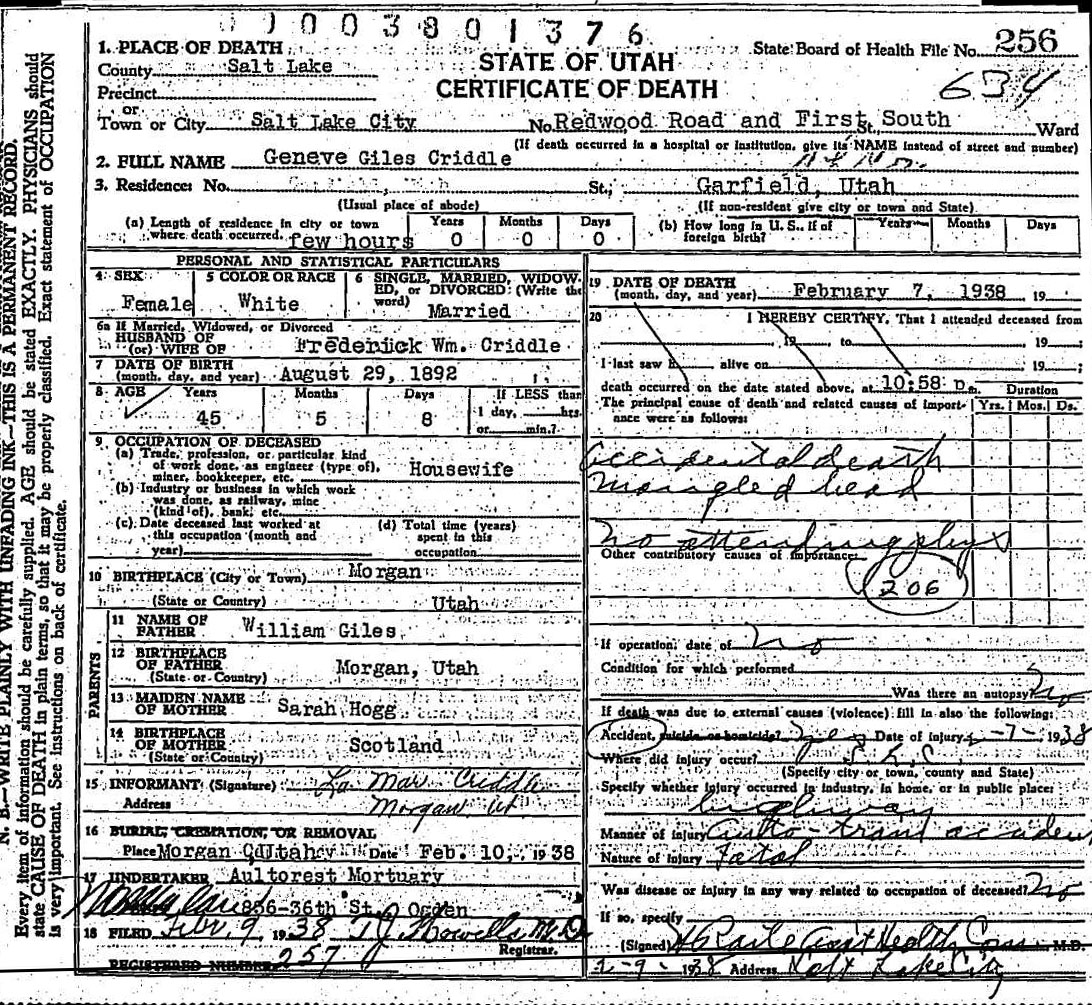 0 J 0 0 3 8 0 1 3 7 6
1. PLACE OF DEATH
County Salt Lake
Precinct
or
Town or City Salt Lake City
STATE OF UTAH
CERTIFICATE OF DEATH
State Board of Health File No. 256
634
No. Redwood Road and First St., South Ward
(If death occurred in a hospital or institution, give its NAME instead of street and number)
2. FULL NAME Geneve Giles Criddle
3. Residence: No. St., Garfield, Utah
(Usual place of abode) (If non-resident give city or town and State)
(a) Length of residence in city or town where death occurred. few hours Years 0 Months 0 Days 0
(b) How long in U. S., if of foreign birth? Years Months Days
PERSONAL AND STATISTICAL PARTICULARS
4 SEX Female
5 COLOR OR RACE White
6 SINGLE, MARRIED, WIDOWED, or DIVORCED: (Write the word) Married
6a If Married, Widowed, or Divorced
HUSBAND OF
(or) WIFE OF Frederick Wm. Criddle
7 DATE OF BIRTH
(month, day, and year) August 29, 1892
8 AGE Years 45 Months 5 Days 8 If LESS than 1 day, hrs. or min.?
9 OCCUPATION OF DECEASED
(a) Trade, profession, or particular kind of work done, as engineer (type of), miner, bookkeeper, etc. Housewife
(b) Industry or business in which work was done, as railway, mine (kind of), bank, etc.
(c) Date deceased last worked at this occupation (month and year)
(d) Total time (years) spent in this occupation
10 BIRTHPLACE (City or Town) Morgan
(State or Country) Utah
PARENTS
11 NAME OF FATHER William Giles
12 BIRTHPLACE OF FATHER
(State or Country) Morgan, Utah
13 MAIDEN NAME OF MOTHER Sarah Hogg
14 BIRTHPLACE OF MOTHER
(State or Country) Scotland
15 INFORMANT (Signature) La Mar Criddle
Address Morgan Ut
16 BURIAL, CREMATION, OR REMOVAL
Place Morgan Utah Date Feb. 10, 1938
17 UNDERTAKER Aultorest Mortuary
836-36th St., Ogden
18 FILED Febr. 9, 1938 Howells M.D.
Registrar.
REGISTERED NUMBER 257
19 DATE OF DEATH
(month, day, and year) February 7, 1938, 19
20 I HEREBY CERTIFY, That I attended deceased from
, 19 , to , 19 ;
I last saw h alive on , 19 ;
death occurred on the date stated above, at 10:58 p.m. Duration
The principal cause of death and related causes of importance were as follows: Yrs. Mos. Ds.
Accidental death
Mangled head
No attending phys
Other contributory causes of importance:
206
If operation, date of No
Condition for which performed
Was there an autopsy? No
If death was due to external causes (violence) fill in also the following:
Accident, suicide or homicide? yes Date of injury 2-7-1938
Where did injury occur? S. L. C.
(Specify city or town, county and State)
Specify whether injury occurred in industry, in home, or in public place:
highway
Manner of injury Auto-train accident
Nature of injury Fatal
Was disease or injury in any way related to occupation of deceased? No
If so, specify
(Signed) Health Com M.D.
2-9-1938 Address Salt Lake City
N. B.—WRITE PLAINLY WITH UNFADING INK—THIS IS A PERMANENT RECORD.
Every item of information should be carefully supplied. AGE should be stated EXACTLY. PHYSICIANS should
state CAUSE OF DEATH in plain terms, so that it may be properly classified. Exact statement of OCCUPATION
is very important. See instructions on back of certificate.